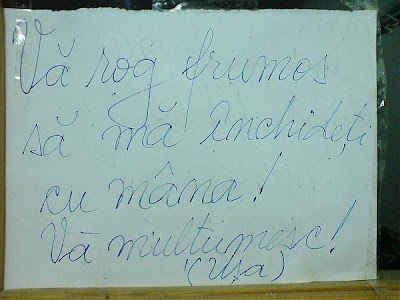 Vă rog frumos
să mă închideți
cu mâna!
Vă mulțumesc!
(Ușa)